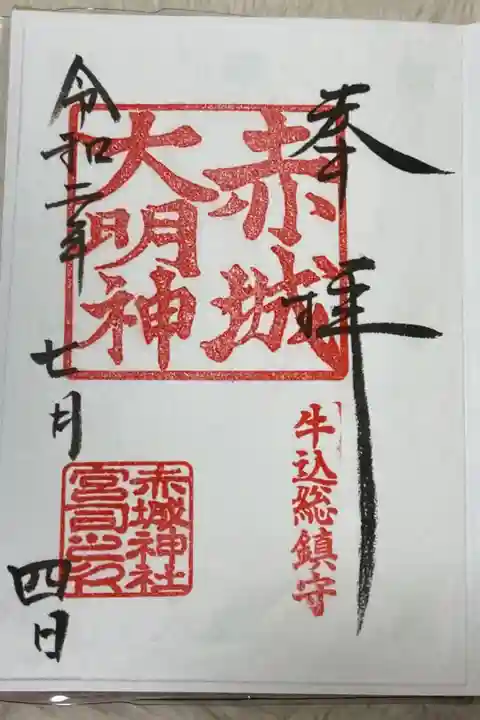 奉拝
赤城
大明神
牛込総鎮守
令和二年七月四日
赤城神社
宮司之印